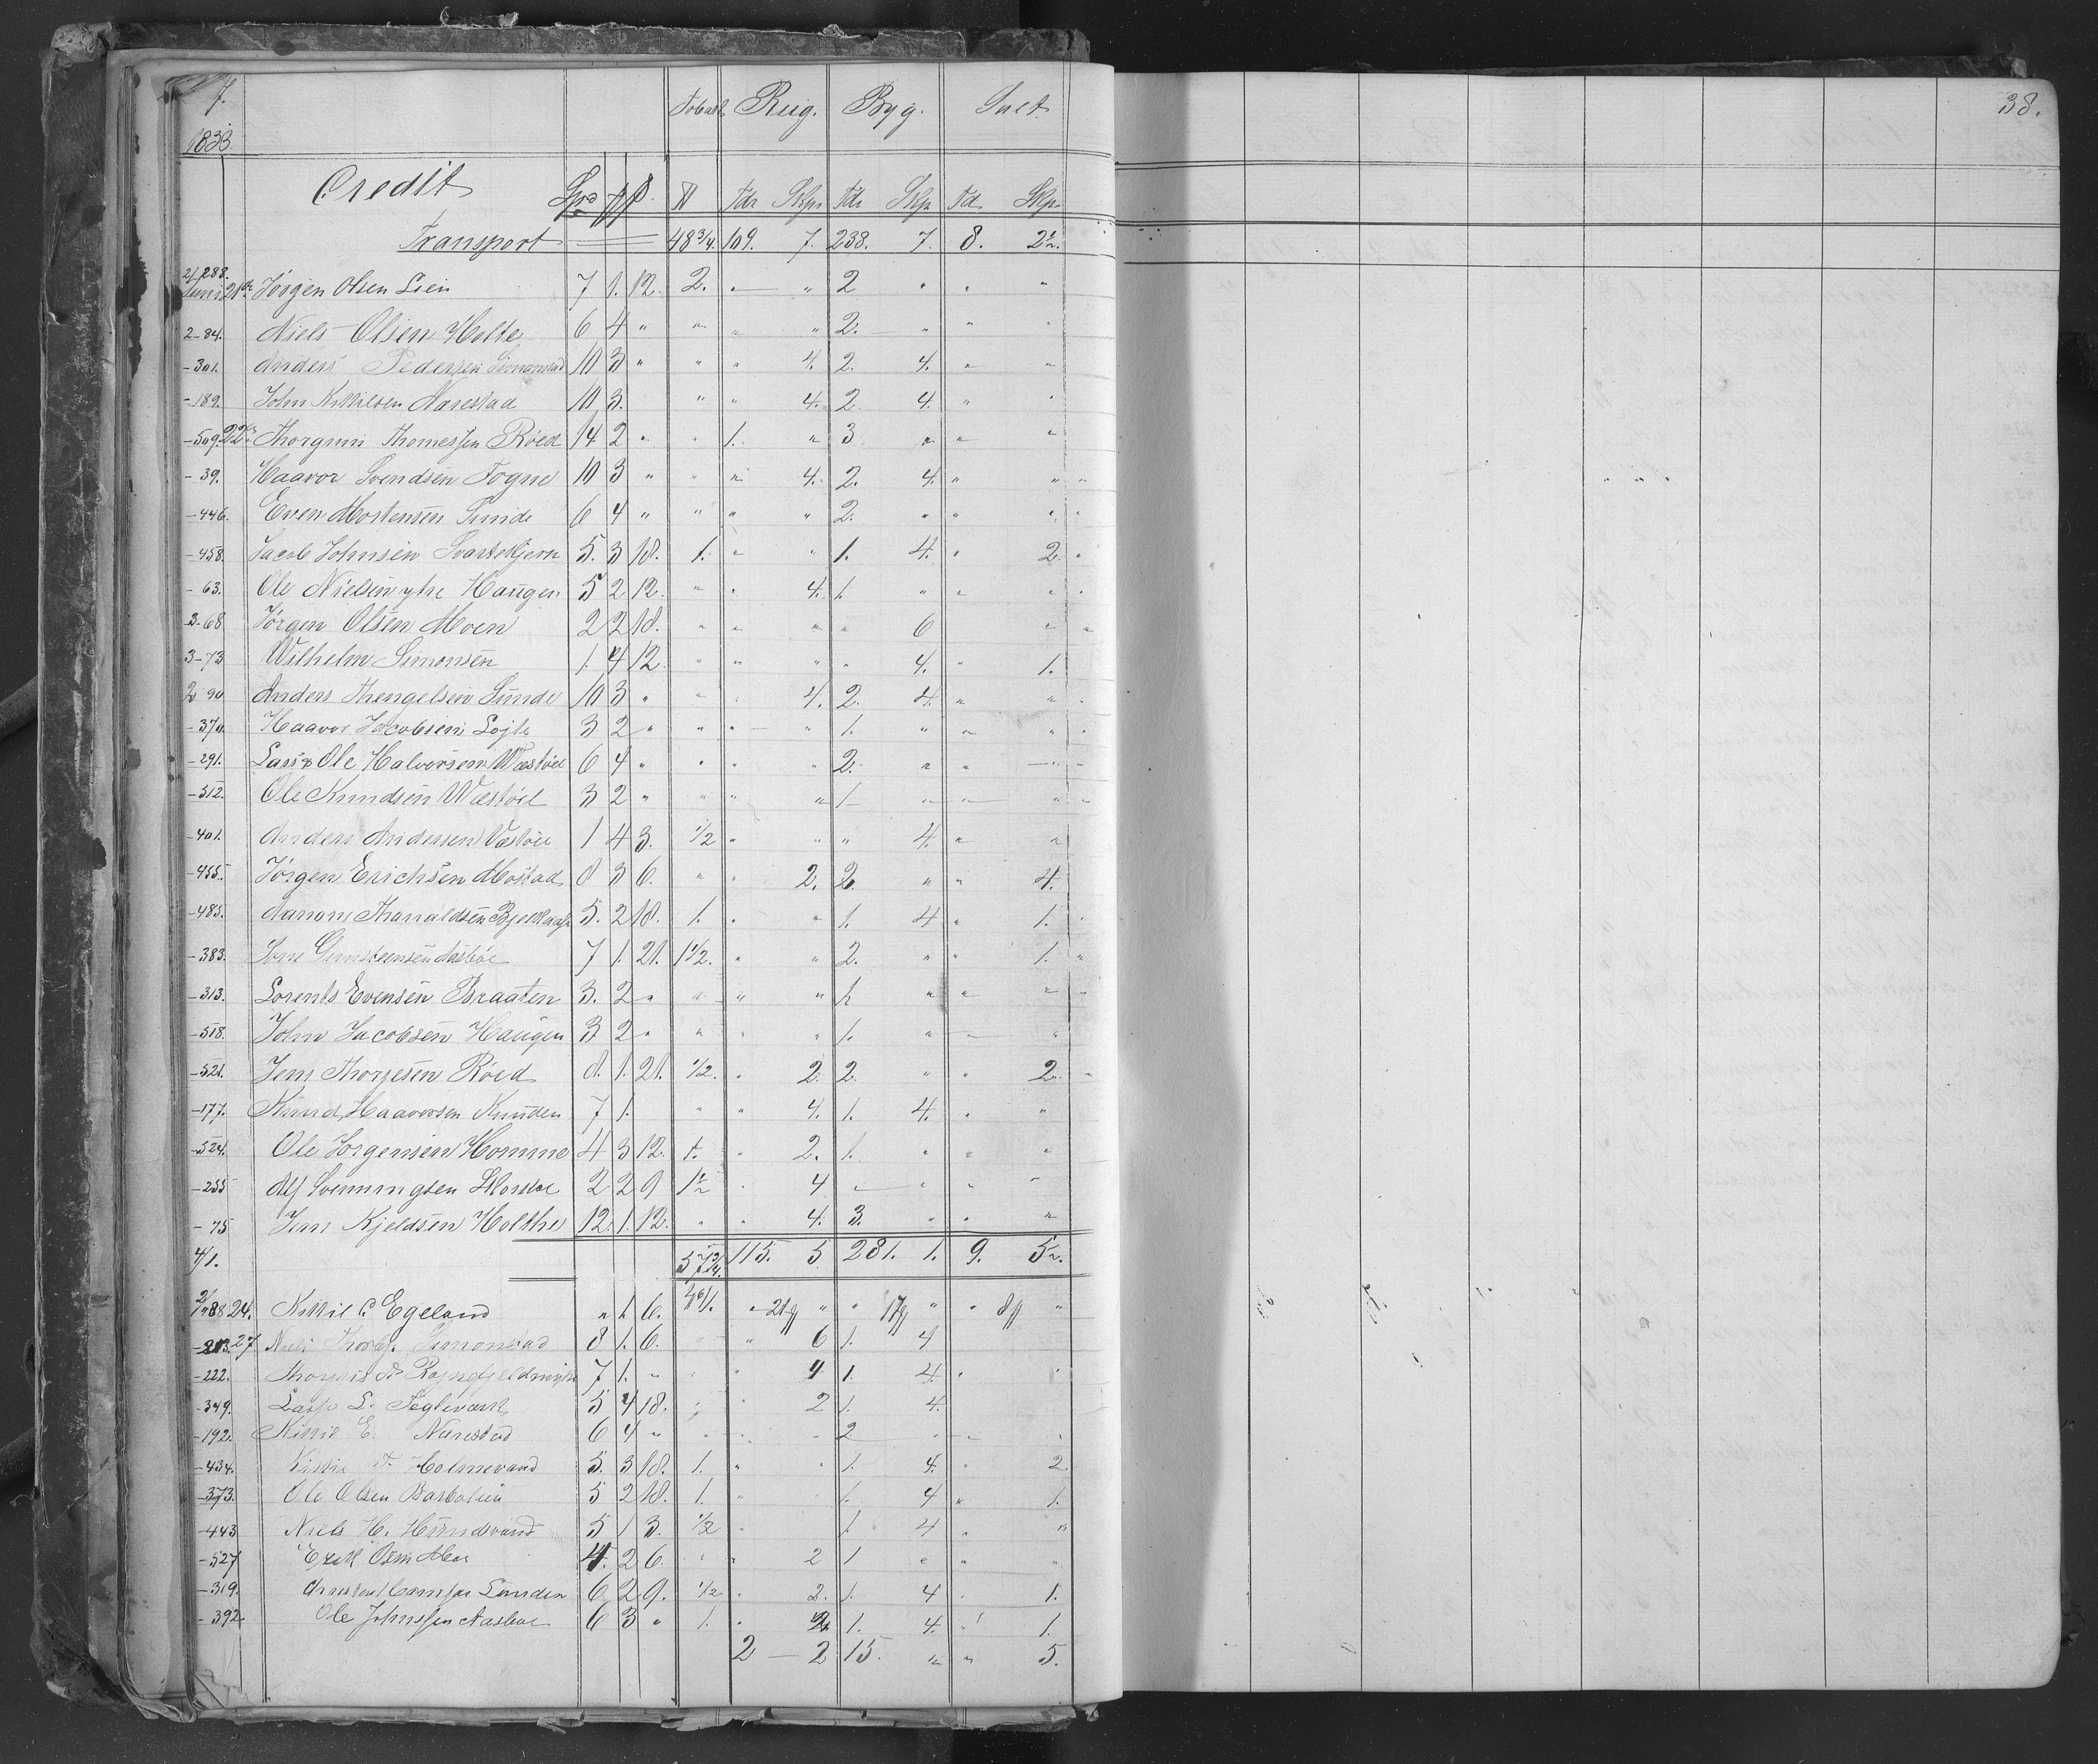 7.
1833
Tobak Rug. Byg. Salt
Credit Spd
Tdr Skpr Tdr Skp Td Skp.
Transport 48 3/4. 109. 7. 238. 7. 8. 2½.
2/288. Juni 21de Jørgen Olsen Lien 7 1. 12. 2. " " 2 " " "
2-84. Niels Olsen Holte 6 4 " " " " 2. " " "
-301. Anders Pedersen Simonstad 10 3 " " " 4. 2. 4. " "
-189. John Kittilsen Narestad 10 3. " " 4. 2. 4. " "
-509. 22 Thorguni Thomessen Röed 14 2 " " 1. " 3 " " "
-39. Haavor Svendsen Fogne 10 3 " " " 4. 2. 4. " "
-446. Even Mortensen Sunde 6 4 " " " " 2. " " "
-458. Jacob Johnsen Svartekjern 5. 3 18. 1. " " 1. 4. " 2.
-63. Ole Nielsen ytre Haugen 5 2 12. " " 4. 1. " " "
3-68 Jørgen Olsen Moen 2 2 18. " " " " 6 " "
3-73 Wilhelm Simonsen 1. 4 12. " " " " 4. " 1.
2 90 Anders Thengelsen Sunde 10 3 " " " 4. 2. 4. " "
-370. Haavor Jacobsen Løjte 3 2 " " " " 1. " " "
-291. Lars & Ole Halvorsen Wæstöel 6 4 " " " " 2. " " "
-512. Ole Knudsen Wæstöel 3 2 " " " " 1 " " "
-401. Anders Andersen Væstöel 1 4 3. 1/2 " " " 4. " "
-455. Jørgen Erichsen Mostad 8 3 6. " " 2. 2. " " 4.
-485. Aanon Tharaldsen 5. 2 18. 1. " " 1. 4 " 1.
-383. Gunsteensen Aasböe 7 1. 21. 1 1/2. " " 2. " " 1. "
-313. Lorents Evensen Braaten 3. 2 " " " " 1. " " "
-518. John Jacobsen Haugen 3 2 " " " " 1. " " "
-521. Jens Thorjesen Röed 8. 1. 21. 1/2. " 2. 2. " " 2.
-177. Knud Haavorsen Knuden 7 1. " " 4. 1. 4. " "
-524. Ole Jorgensen Homme 4 3 12. 1. " 2. 1. " " "
-255 Alf Svenningsen 2 2 9 1½ " 4 " " "
-75 Jens Kjeldsen Holthe 12. 1. 12. " " 4. 3. " " "
4/1. 57 3/4. 115. 5 281. 1. 9. 5½.
88 24. Kittil C. Egeland " 1 6. " 21 " " 17 " " 8 "
-213. 27 Niels Simonstad 8 1. 6. " " 6 1. 4
-222. 7 1. " " " 4 1. 4. " "
-349. Lars L. Teglverk 5 4 18. " " 2 1. 4.
-192. Kittil E. Narestad 6 4 " " " " 2 " " "
-434. Holmevand 5. 3 18. 1. " " 1. 4. " 2
-373. Ole Olsen 5 2 18. 1. " " 1. 4 " 1.
-443 Niels H. Hundvand 5 1 3. 1/2 " 1. 4 " "
-527 Erik Olsen Moe 4. 2 6. " " 2 1 " " "
-319. 6 2 9. 1/2 " 2. 1. 4 " 1.
-392 Ole Johnssen Aasboe 6 3 " 1. " 2 1. 4. " 1.
2 — 2 15. " " 5.
38.